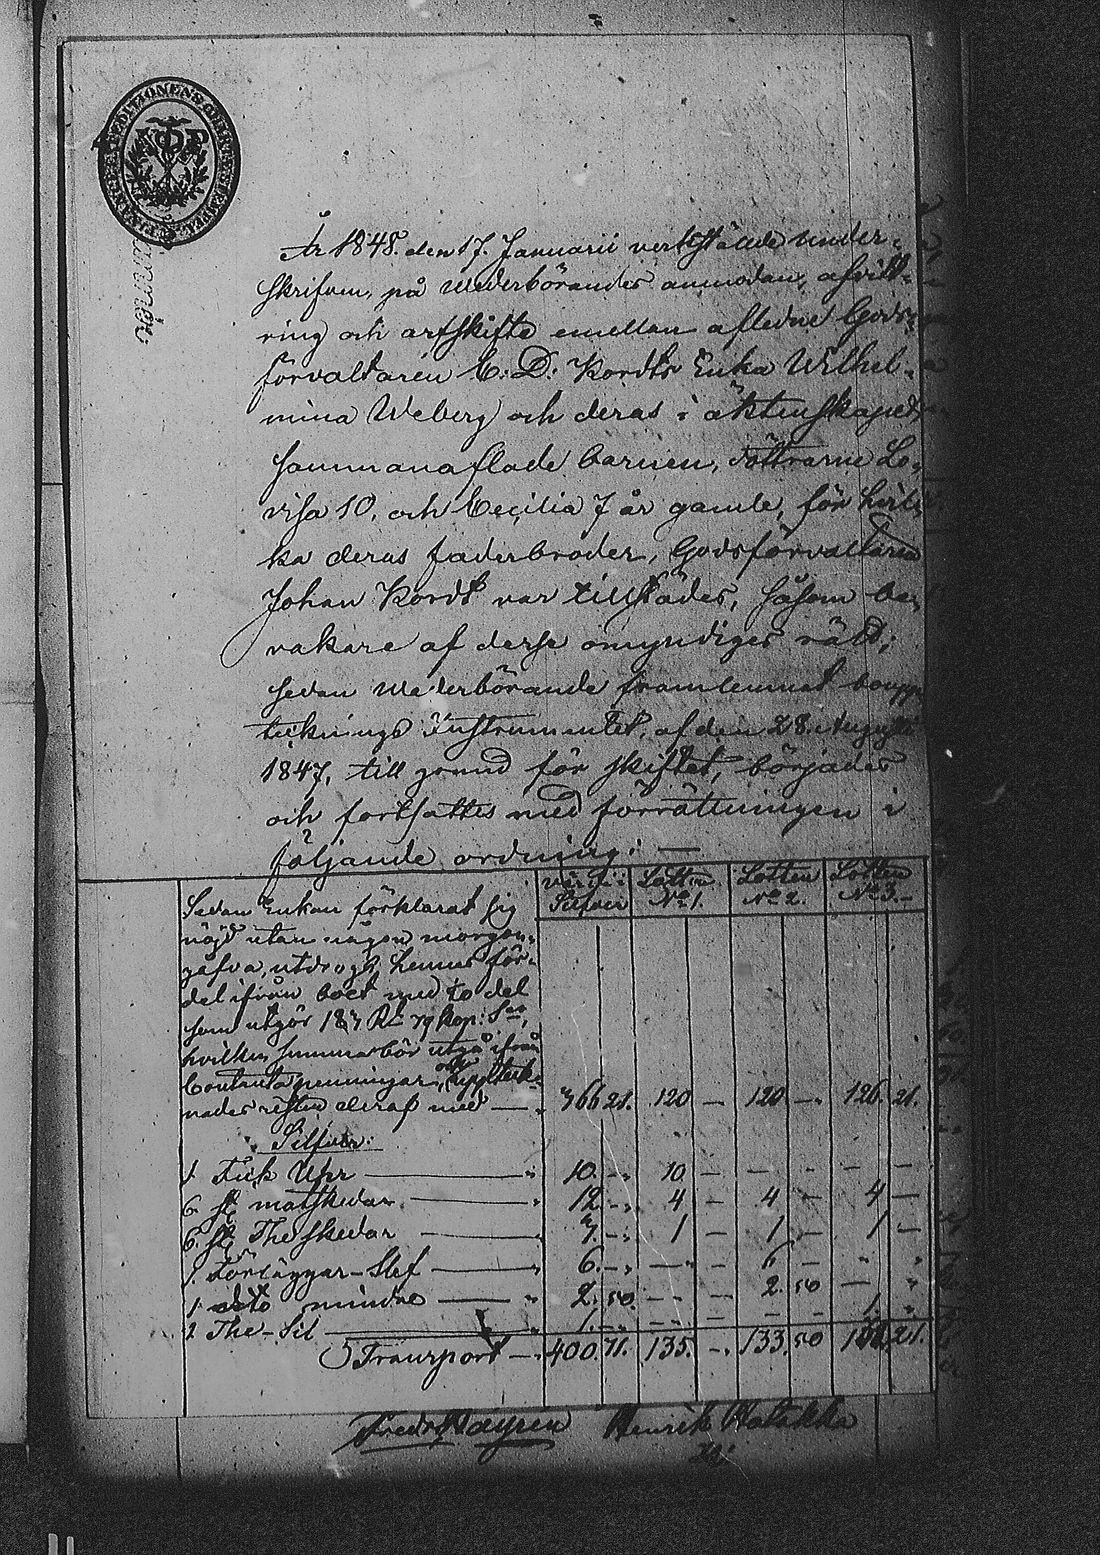 År 1848. den 17. Januarii verkstälde under-
skrifven, på wederbörandes anmodan, afvitt-
ring och arfskifte emellan aflidne Gods-
förvaltaren C: D: Kordts Enka Wilhel-
mina Weberg och deras i äktenskapet
sammanaflade barnen, döttrarne Lo-
visa 10, och Cecilia 7 år gamle, för hvil-
ka deras faderbroder, Godsförvaltaren
Johan Kordt var tillstädes, såsom be-
vakare af desse omyndiges rätt;
sedan wederbörande framlemnat bouppe-
tecknings Instrumentet, af den 28. Augusti
1847, till grund för skiftet, börjades
och fortsattes med förrättningen i
följande ordning: —
värde i Silfver Lotten No 1. Lotten No 2. Lotten No 3.
Sedan Enkan förklarat sig
nöjd utan någon morgon-
gåfva, utdrogs hennes för-
del ifrån boet med 1/20 del
som utgör 18 R 79 kop: Sr,
hvilken summa bör utgå ifrån
Contanta penningar, och upptek-
nades resten deraf med — 366 21. 120 — 120 — 126. 21.
Silfver:
1. Fick Uhr — 10. — 10 — — — — —
6 st matskedar — 12 — 4 — 4 — 4 —
6. st The skedar — 3. — 1 — 1 — 1 —
1. Förläggar-Slef — 6. — — — 6 —
1. dito mindre — 2. 50. — — 2. 50 —
1. The-Sil — 1. — — — — — 1.
Transport — 400. 71. 135. — 133. 50 132. 21.
Henrik Hatakka